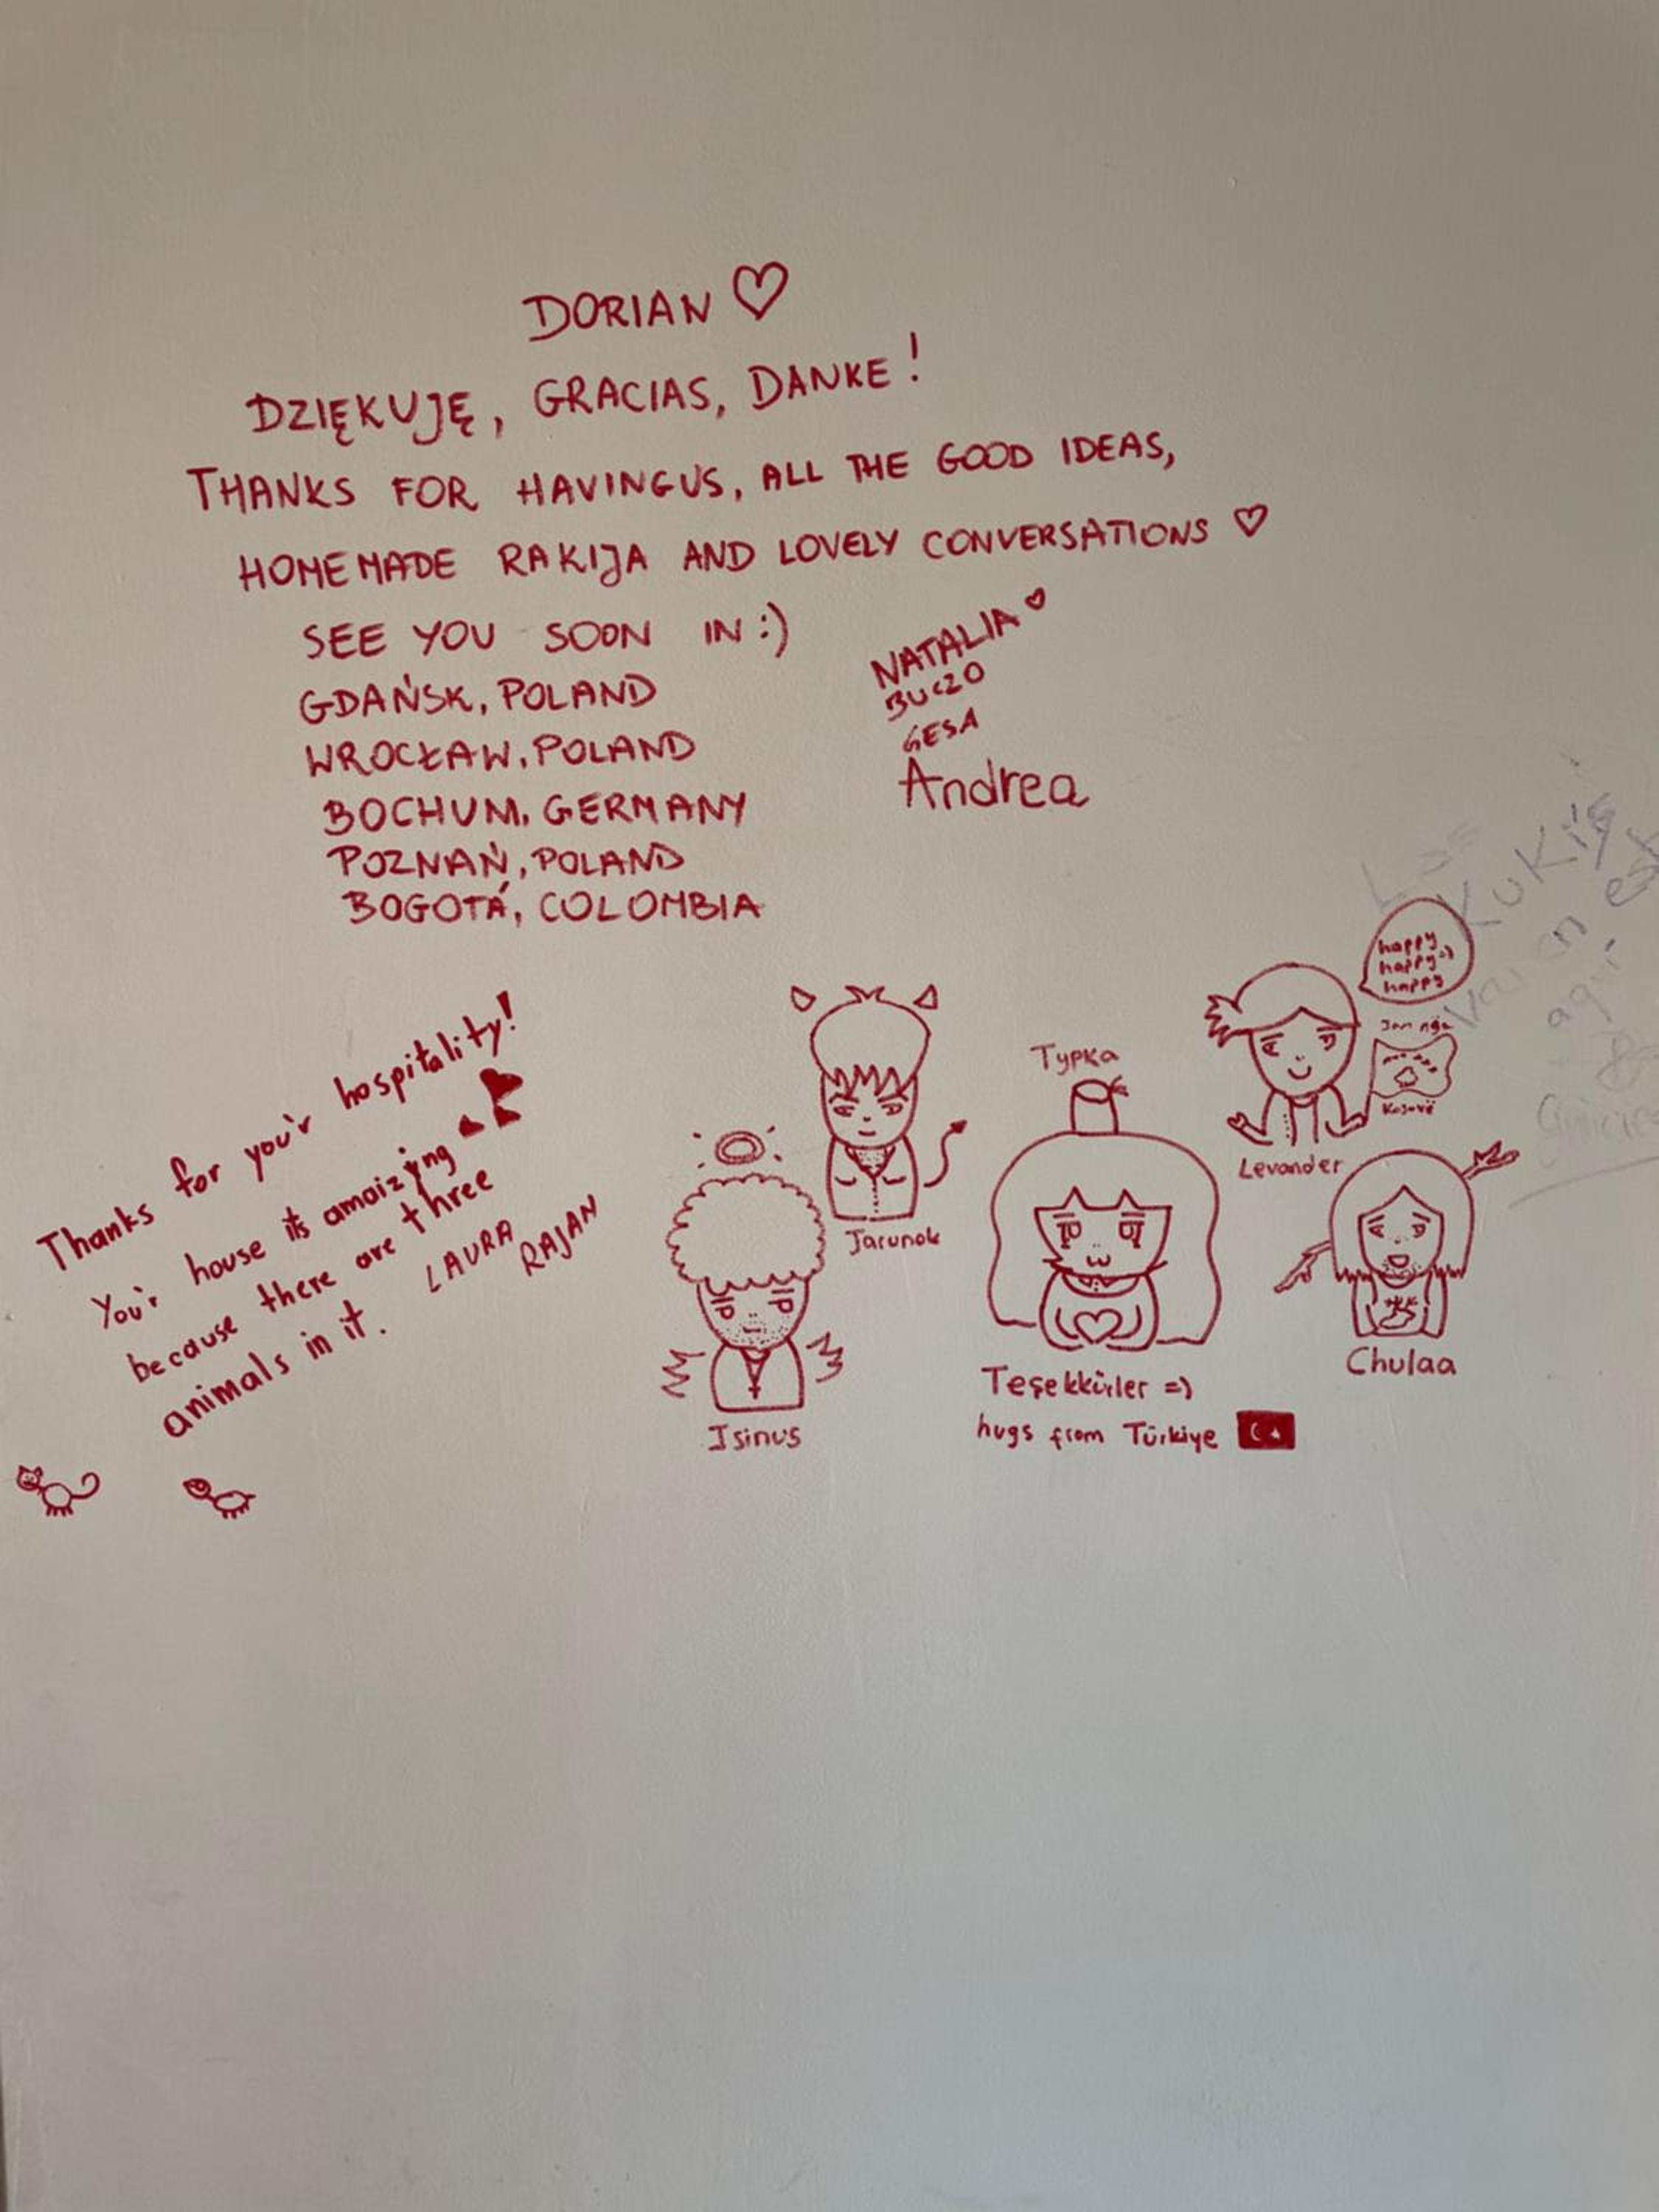 DORIAN ♡
DZIĘKUJĘ, GRACIAS, DANKE!
THANKS FOR HAVINGUS, ALL THE GOOD IDEAS,
HOMEMADE RAKIJA AND LOVELY CONVERSATIONS ♡
SEE YOU SOON IN :)
GDAŃSK, POLAND
WROCŁAW, POLAND
BOCHUM, GERMANY
POZNAŃ, POLAND
BOGOTÁ, COLOMBIA
NATALIA ♡
BUCZO
GESA
Andrea
Thanks for you'r hospitality!
You'r house its amaizyng
because there are three
animals in it.
LAURA
RAJAN
Isinus
Jarunok
Турка
Teşekkürler =)
hugs from Türkiye
happy
happy =)
happy
Jam nga
Kosovë
Levander
Chulaa